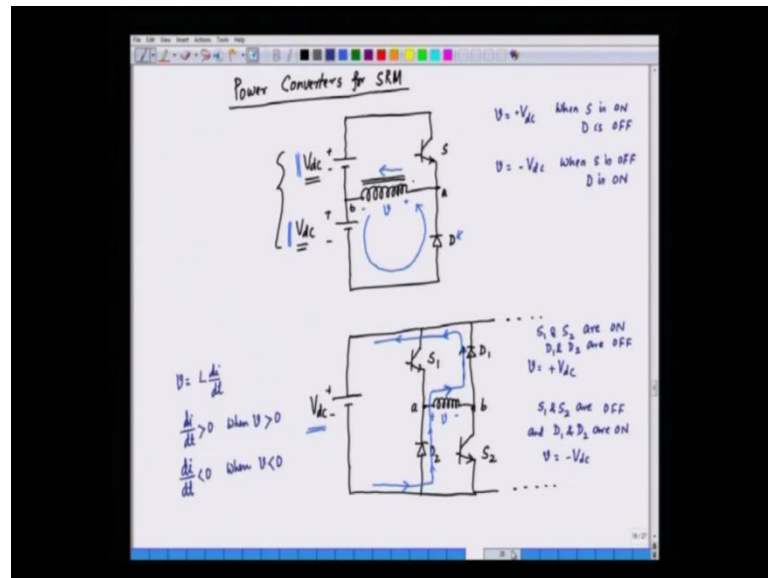 File Edit View Insert Actions Tools Help
Power Converters for SRM
V = +Vdc when S is ON
D is OFF
V = -Vdc when S is OFF
D is ON
+
Vdc
-
S
b - V + a
+
Vdc
-
D
S1 & S2 are ON
D1 & D2 are OFF
V = +Vdc
S1 & S2 are OFF
and D1 & D2 are ON
V = -Vdc
V = L di/dt
di/dt > 0 when V > 0
di/dt < 0 when V < 0
+
Vdc
-
S1
D1
a + V - b
D2
S2